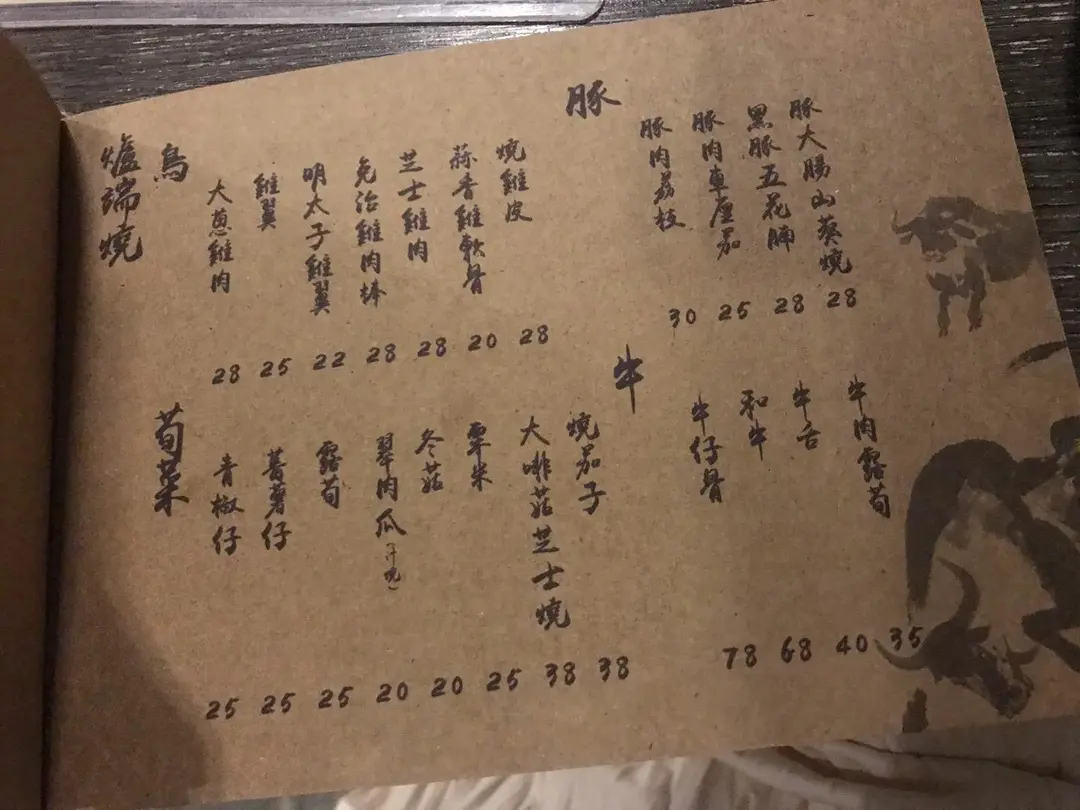 爐端燒
鳥
大葱雞肉 28
雞翼 25
明太子雞翼 22
免治雞肉棒 28
芝士雞肉 28
蒜香雞軟骨 20
燒雞皮 28
豚
豚肉荔枝 30
豚肉車厘茄 25
黑豚五花腩 28
豚大腸山葵燒 28
荀菜
青椒仔 25
蕃薯仔 25
露荀 25
翠肉瓜 20
冬菇 20
粟米 25
大啡菇芝士燒 38
燒茄子 38
牛
牛仔骨 78
和牛 68
牛舌 40
牛肉露荀 35